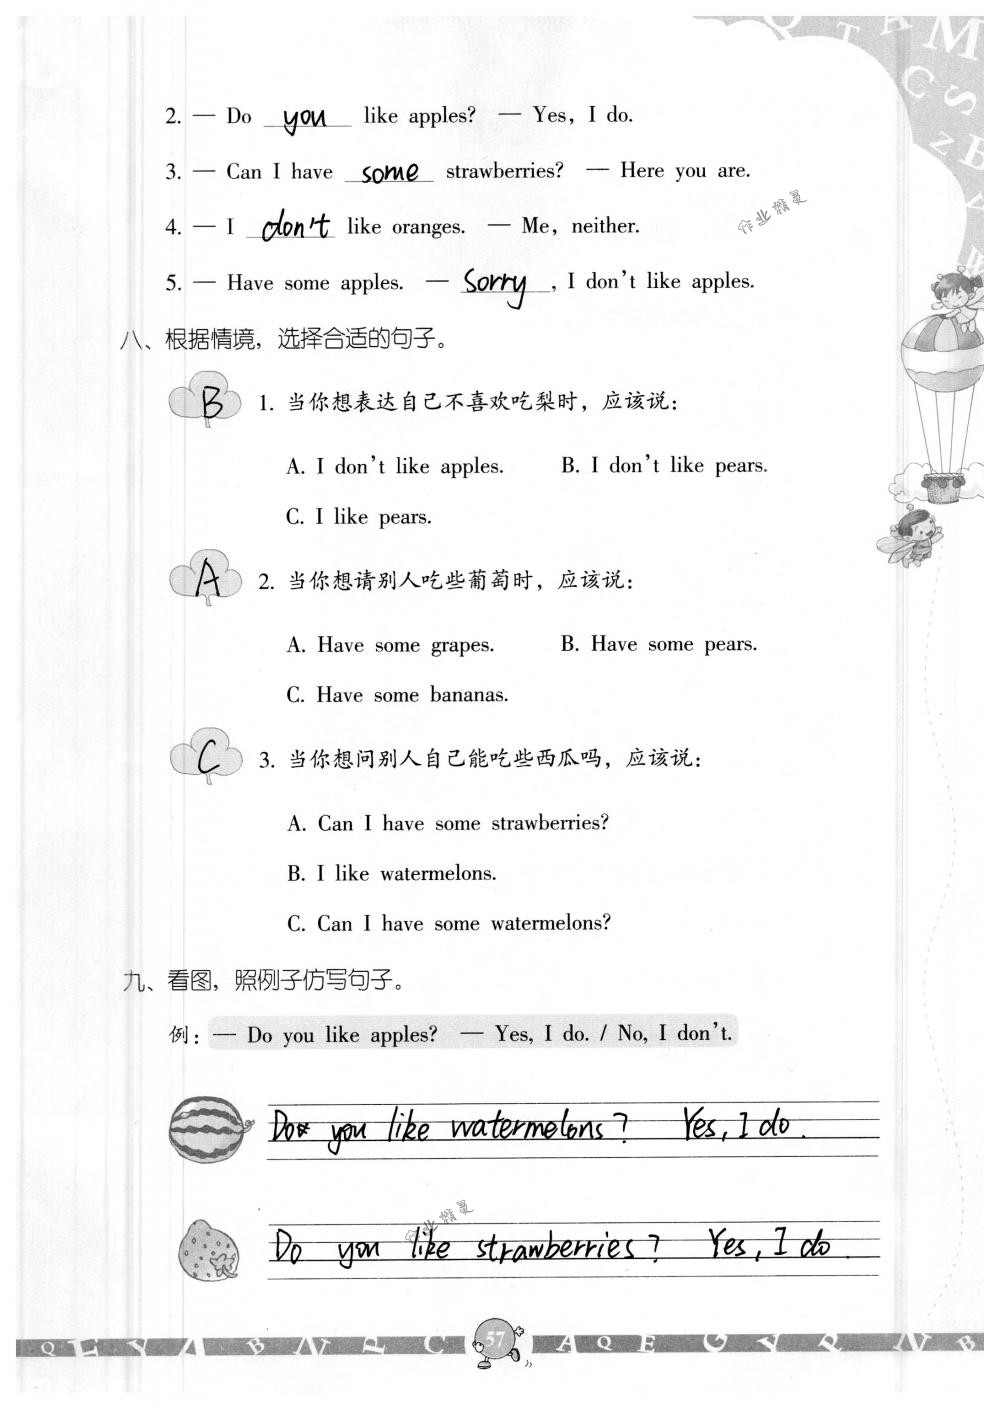 2. — Do you like apples? — Yes, I do.
3. — Can I have some strawberries? — Here you are.
4. — I don't like oranges. — Me, neither.
5. — Have some apples. — Sorry, I don't like apples.
作业精灵
八、根据情境，选择合适的句子。
B 1. 当你想表达自己不喜欢吃梨时，应该说：
A. I don't like apples. B. I don't like pears.
C. I like pears.
A 2. 当你想请别人吃些葡萄时，应该说：
A. Have some grapes. B. Have some pears.
C. Have some bananas.
C 3. 当你想问别人自己能吃些西瓜吗，应该说：
A. Can I have some strawberries?
B. I like watermelons.
C. Can I have some watermelons?
九、看图，照例子仿写句子。
例：— Do you like apples? — Yes, I do. / No, I don't.
Do you like watermelons? Yes, I do.
作业精灵
Do you like strawberries? Yes, I do.
57